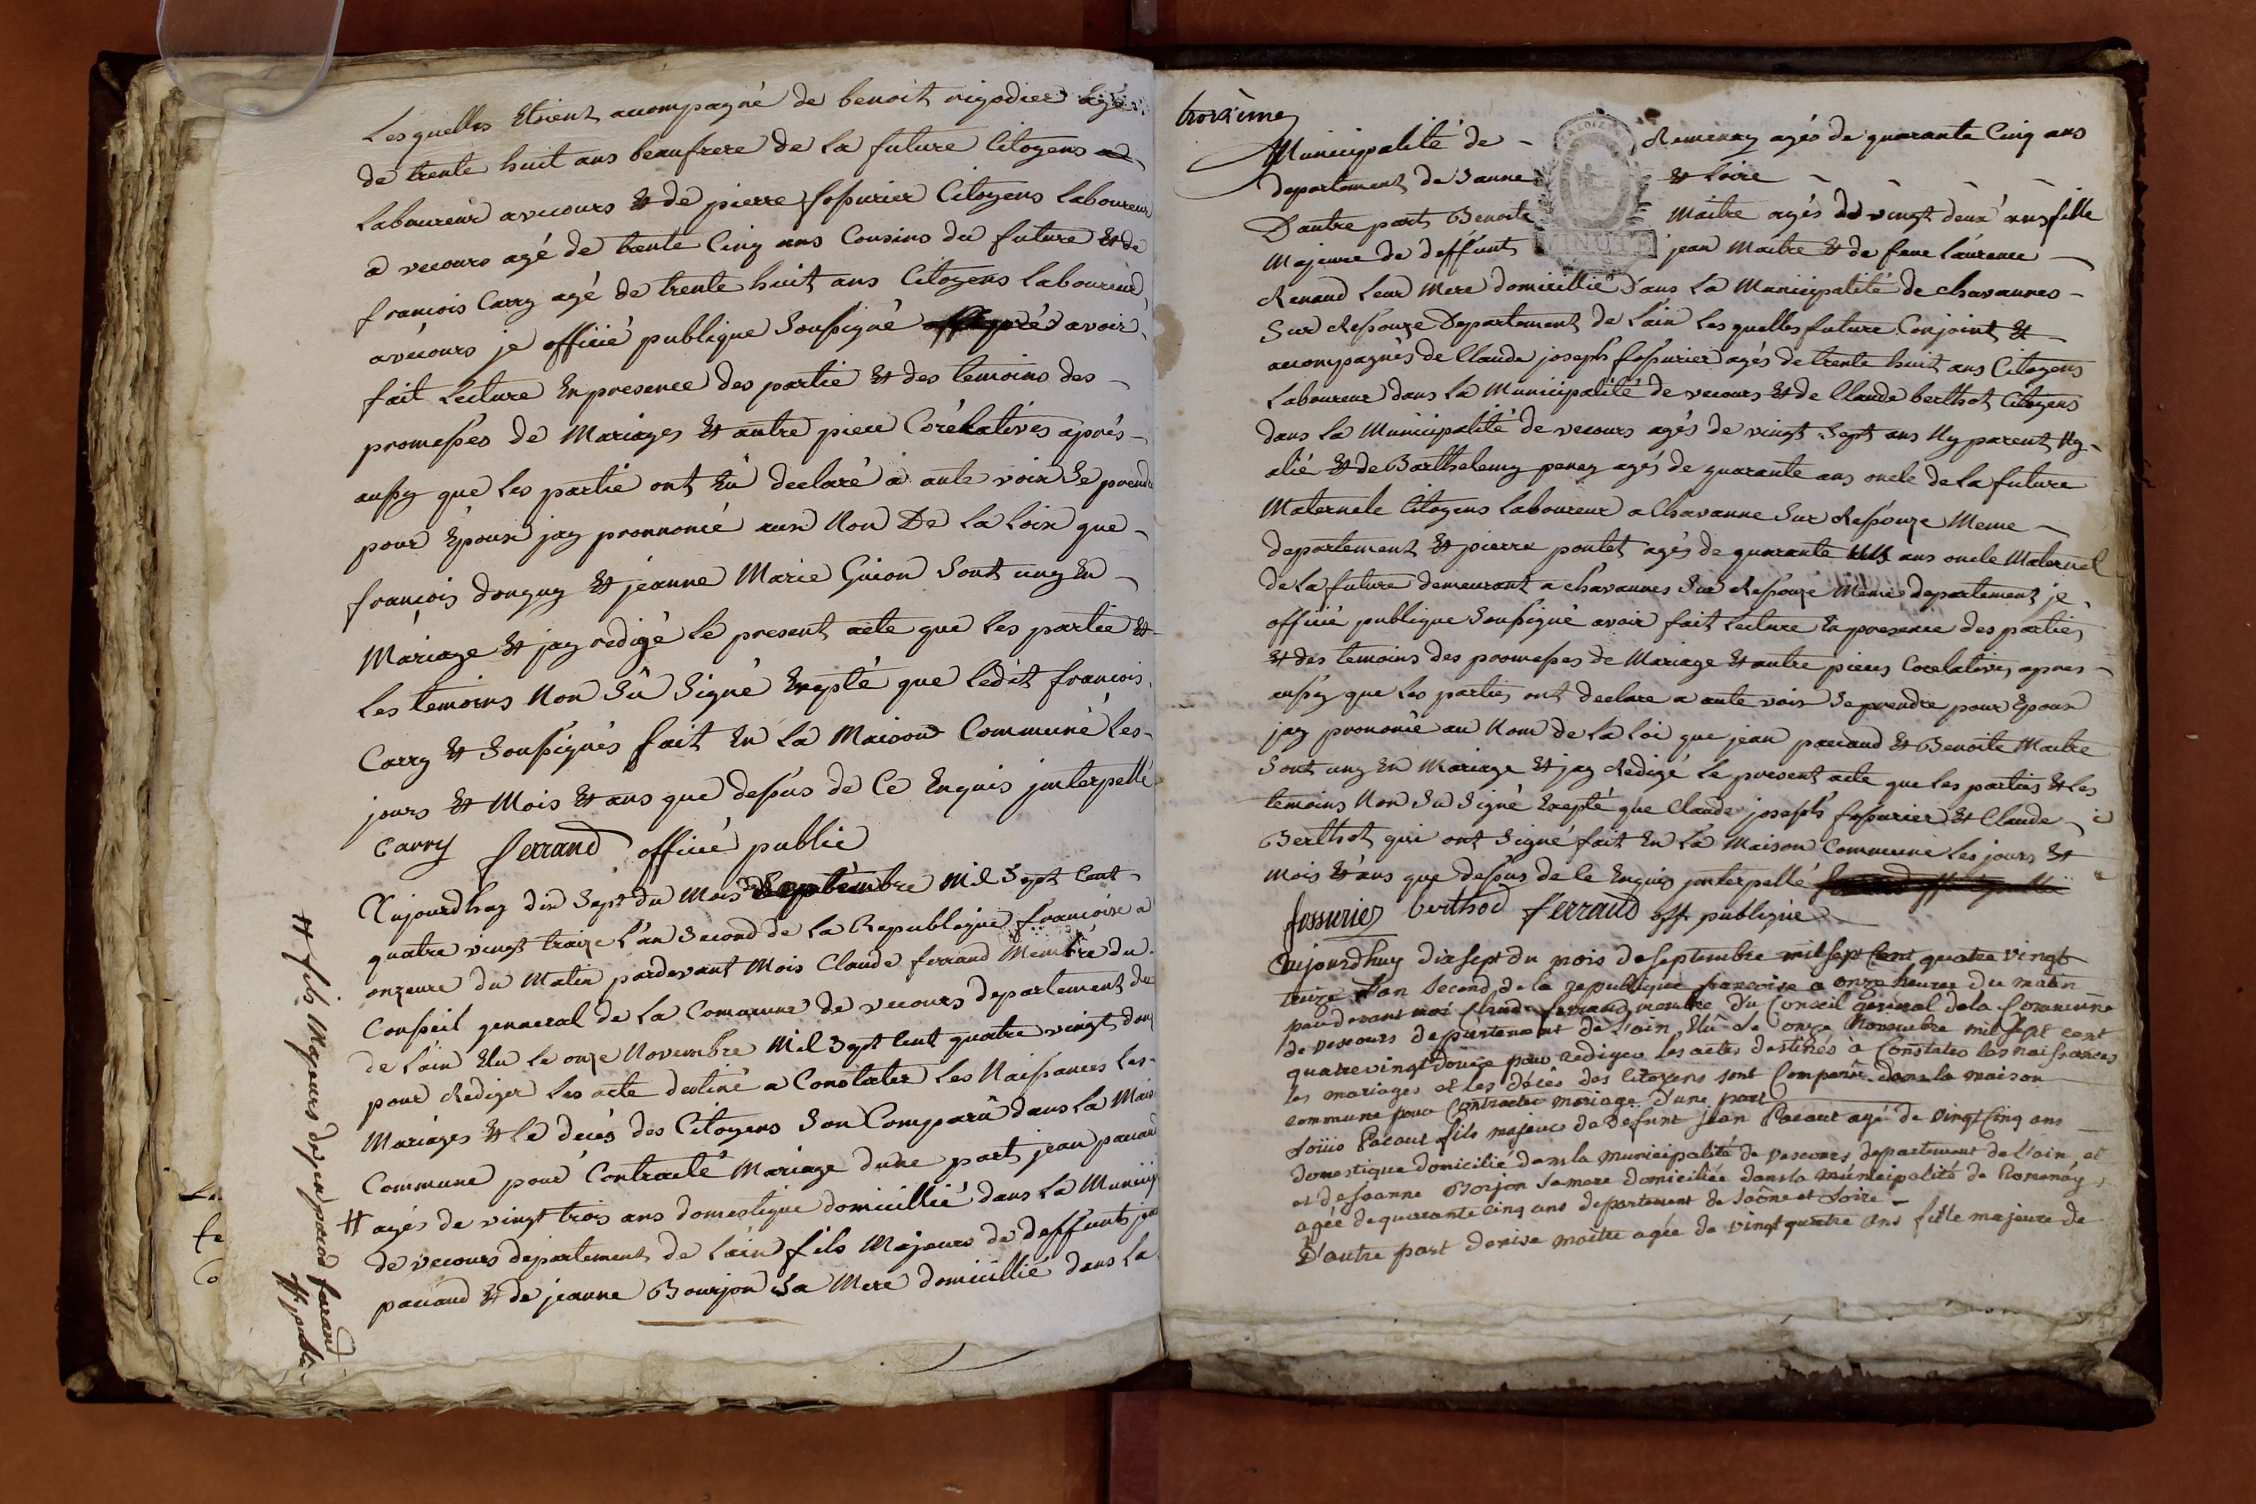 Lesquelles Etoient accompagné de benoit rigodier agé
de trente huit ans beaufrere de la future Citoyens
Laboureur avecours & de pierre fossurier Citoyens laboureur
a vecours agé de trente Cinq ans Cousins du future & de
francois Carry agé de trente huit ans Citoyens laboureur
avécours je officié publique Soussigné après avoir
fait Lecture En presence des partie & des temoins des
promesses de Mariages & autre piece Corélatives après
aussy que les partie ont Eû declaré a aute voix Se prendre
pour Epoux jay pronnoncé aux Non De la Loix que
francois donguy & jeanne Marie Guion Sont uny En
Mariage & jay redigé le present acte que les partie &
Les temoins Non Sû Signé Exepté que ledit francois
Carry & Soussignés fait En la Maison Commune les
jours & Mois & ans que dessus de Ce Enquis jnterpellé
Carry ferrand officié public
Aujourdhuy dix Sept du Mois de Septembre Mil Sept Cent
quatre vingt traize L'an Second de la Republique francoise a
onzeure du Matin pardevant Mois Claude ferrand Membre du
Conseil genneral de la Commune de vecours departement de
de Lain Elu le onze Novembre Mil Sept Cent quatre vingt douz
pour Rediger les acte destiné a Constater les Naissances les
Mariages & le decés des Citoyens Son Comparû dans la Mais
Commune pour Contracté Mariage dune part jean pacaud
# agés de vingt trois ans domestique domicillié dans la Municip
de vecours departement de Lain fils Majeurs de deffunts
pacaud & de jeanne Bourjon Sa Mere domicillié dans la
# fils Majeurs de jen pacaud ferrand
off public
troixième
Municipalité de Romenay agés de quarante Cinq ans
departement de Saune & Loire
D'autre part Benoite Maitre agés de vingt deux ans fille
Majeure de deffunt jean Maitre & de feue laurence
Renaud leur Mere domicillié dans la Municipalité de chavannes
Sur Ressouze Departement de Lain lesquelles future Conjoint &
accompagnés de Claude joseph fossurier agés de trente huit ans Citoyens
Laboureur dans la Municipalité de vecours & de Claude berthot Citoyens
dans la Municipalité de vecours agés de vingt Sept ans Ny parent Ny
alié & de Barthelemy peney agés de quarante ans oncle de la future
Maternele Citoyens laboureur a Chavanne Sur Ressouze Meme
departement & pierre pontet agés de quarante ans oncle Maternel
de la future demeurant a chavannes Sur Ressouze Meme departement je
officié publique Soussigné avoir fait Lecture En presence des partie
& des temoins des promesses de Mariage & autre pieces Corelatives apres
aussy que les parties ont declare a aute voix Se prendre pour Epoux
jay prononcé au Nom de la Loi que jean pacaud & Benoite Maitre
Sont uny En Mariage & jay Redigé le present acte que les parties & les
temoins Non Su Signé Exepté que Claude joseph fossurier & Claude
Berthot qui ont Signé fait En la Maison Commune les jours &
mois & ans que dessus de le Enquis jnterpellé
fossurier berthod ferrand off. publique
Aujourdhuy dix sept du mois de septembre mil sept Cent quatre vingt
treize l'an second de la republique francoise a onze heures du matin
par devant moi Claude ferrand membre du Conseil general de la Commune
de vescours departement de l'ain, Elû le onze Novembre mil sept cent
quatre vingt douze pour rediger les actes destinés à Constater les naissances
les mariages et les décès des Citoyens sont Comparu dans la maison
commune pour Contracter mariage d'une part
Loüis Pacaut fils majeur de Defunt jean Pacaut agé de vingt Cinq ans
domestique domicilié dans la municipalité de vescours departement de l'ain et
et de jeanne Borjon sa mere domiciliée dans la municipalité de Romenay
agée de quarante cinq ans departement de saône et Loire
D'autre part denise maitre agée de vingt quatre ans fille majeure de